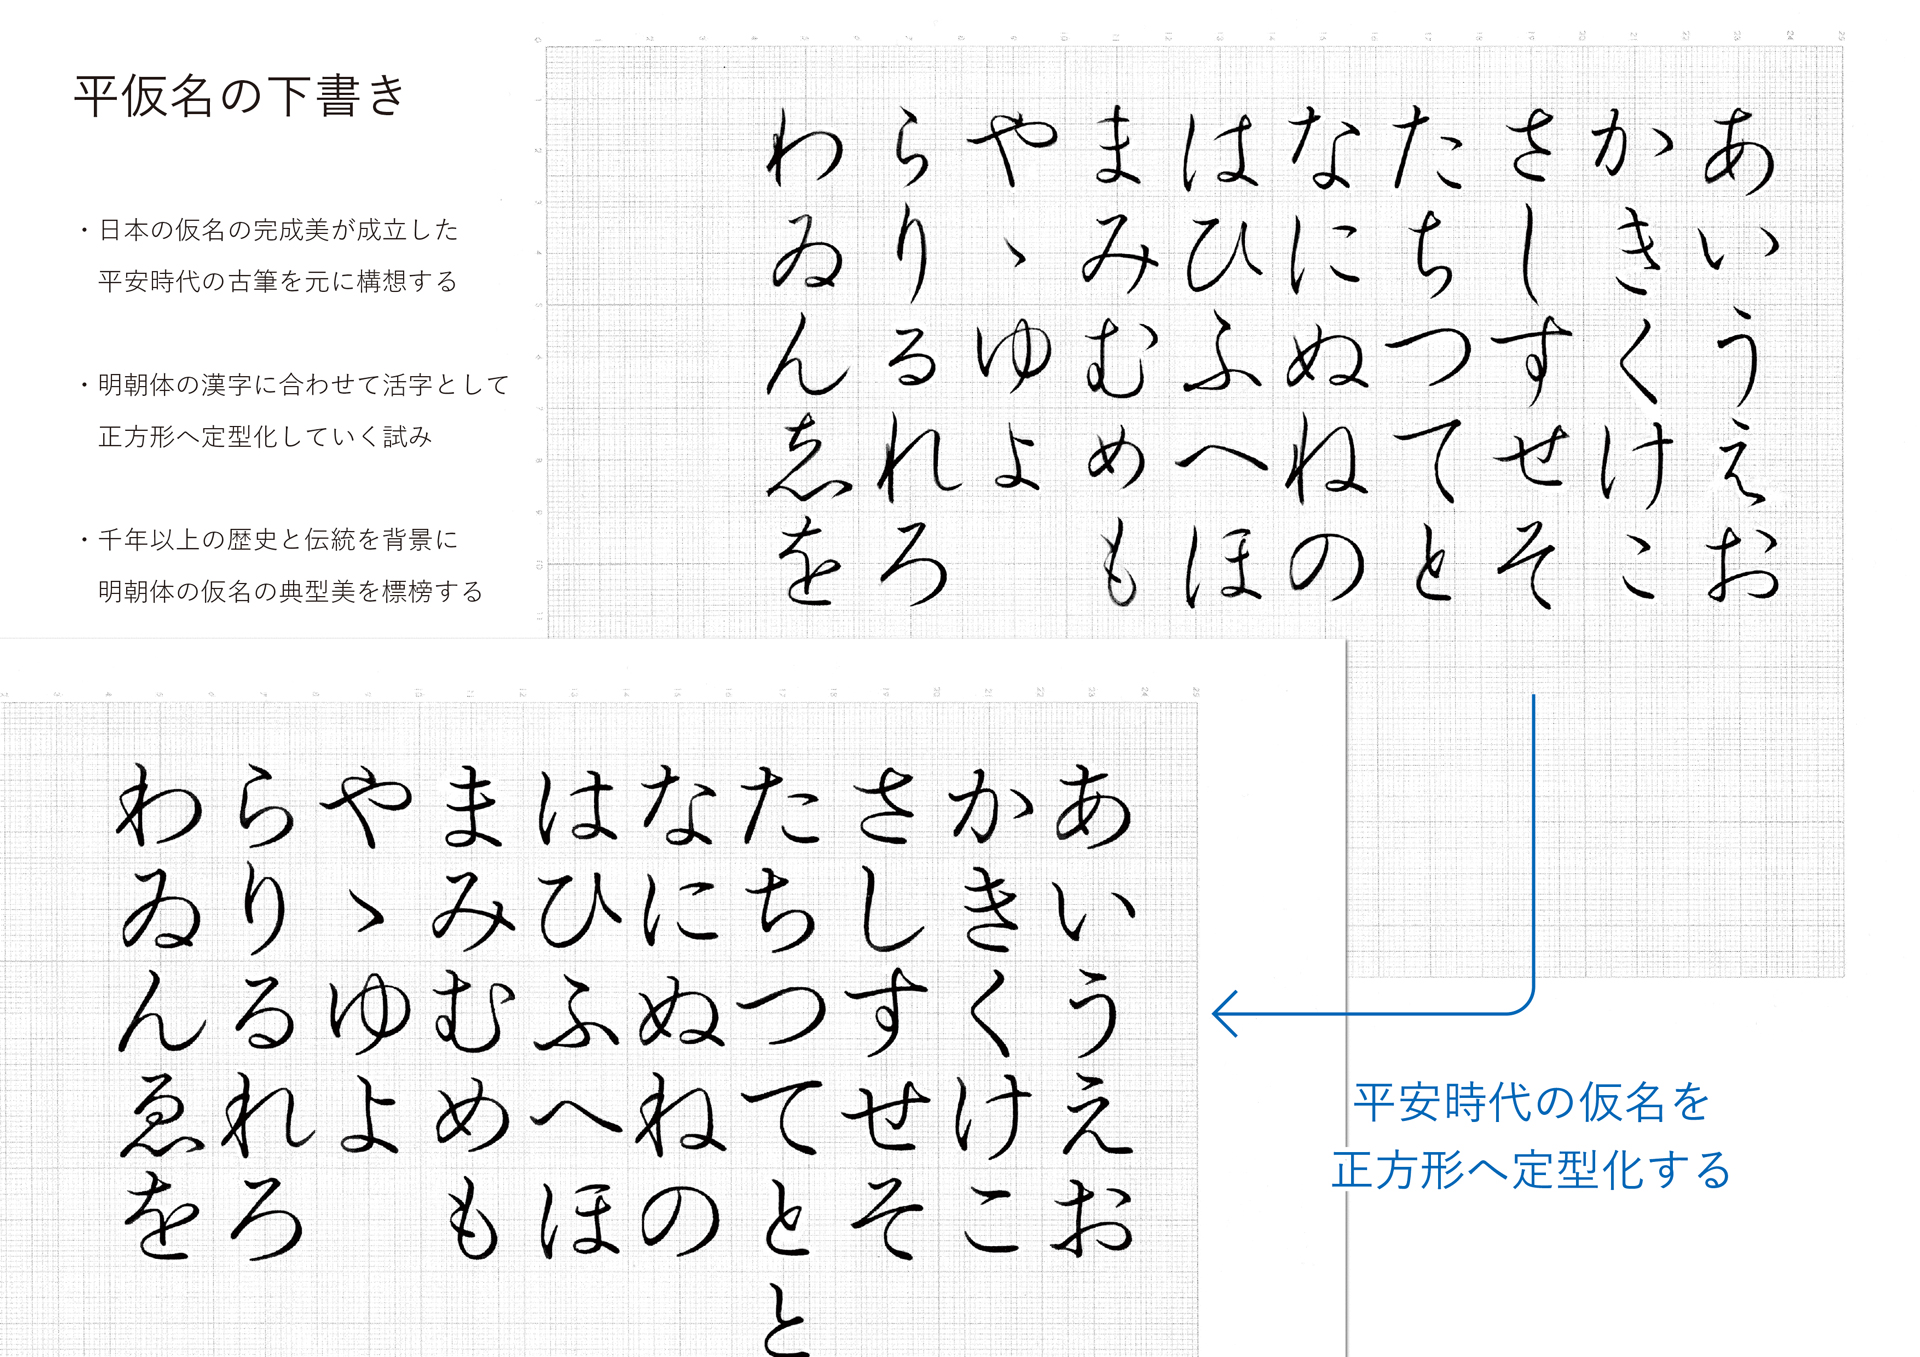 平仮名の下書き
・日本の仮名の完成美が成立した
平安時代の古筆を元に構想する
・明朝体の漢字に合わせて活字として
正方形へ定型化していく試み
・千年以上の歴史と伝統を背景に
明朝体の仮名の典型美を標榜する
あいうえお
かきくけこ
さしすせそ
たちつてと
なにぬねの
はひふへほ
まみむめも
やゝゆよ
らりるれろ
わゐんゑを
あいうえお
かきくけこ
さしすせそ
たちつてとと
なにぬねの
はひふへほ
まみむめも
やゝゆよ
らりるれろ
わゐんゑを
平安時代の仮名を
正方形へ定型化する